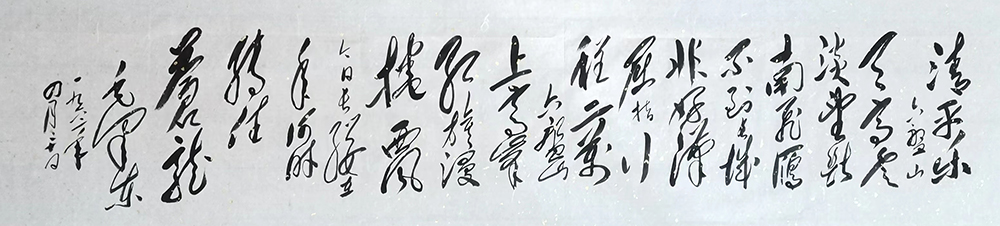 清平乐
六盘山
天高云
淡望断
南飞雁
不到长城
非好汉
屈指行
程二万
六盘山
上高峰
红旗漫
捲西風
今日长缨在
手何时
缚住
苍龙
毛泽东